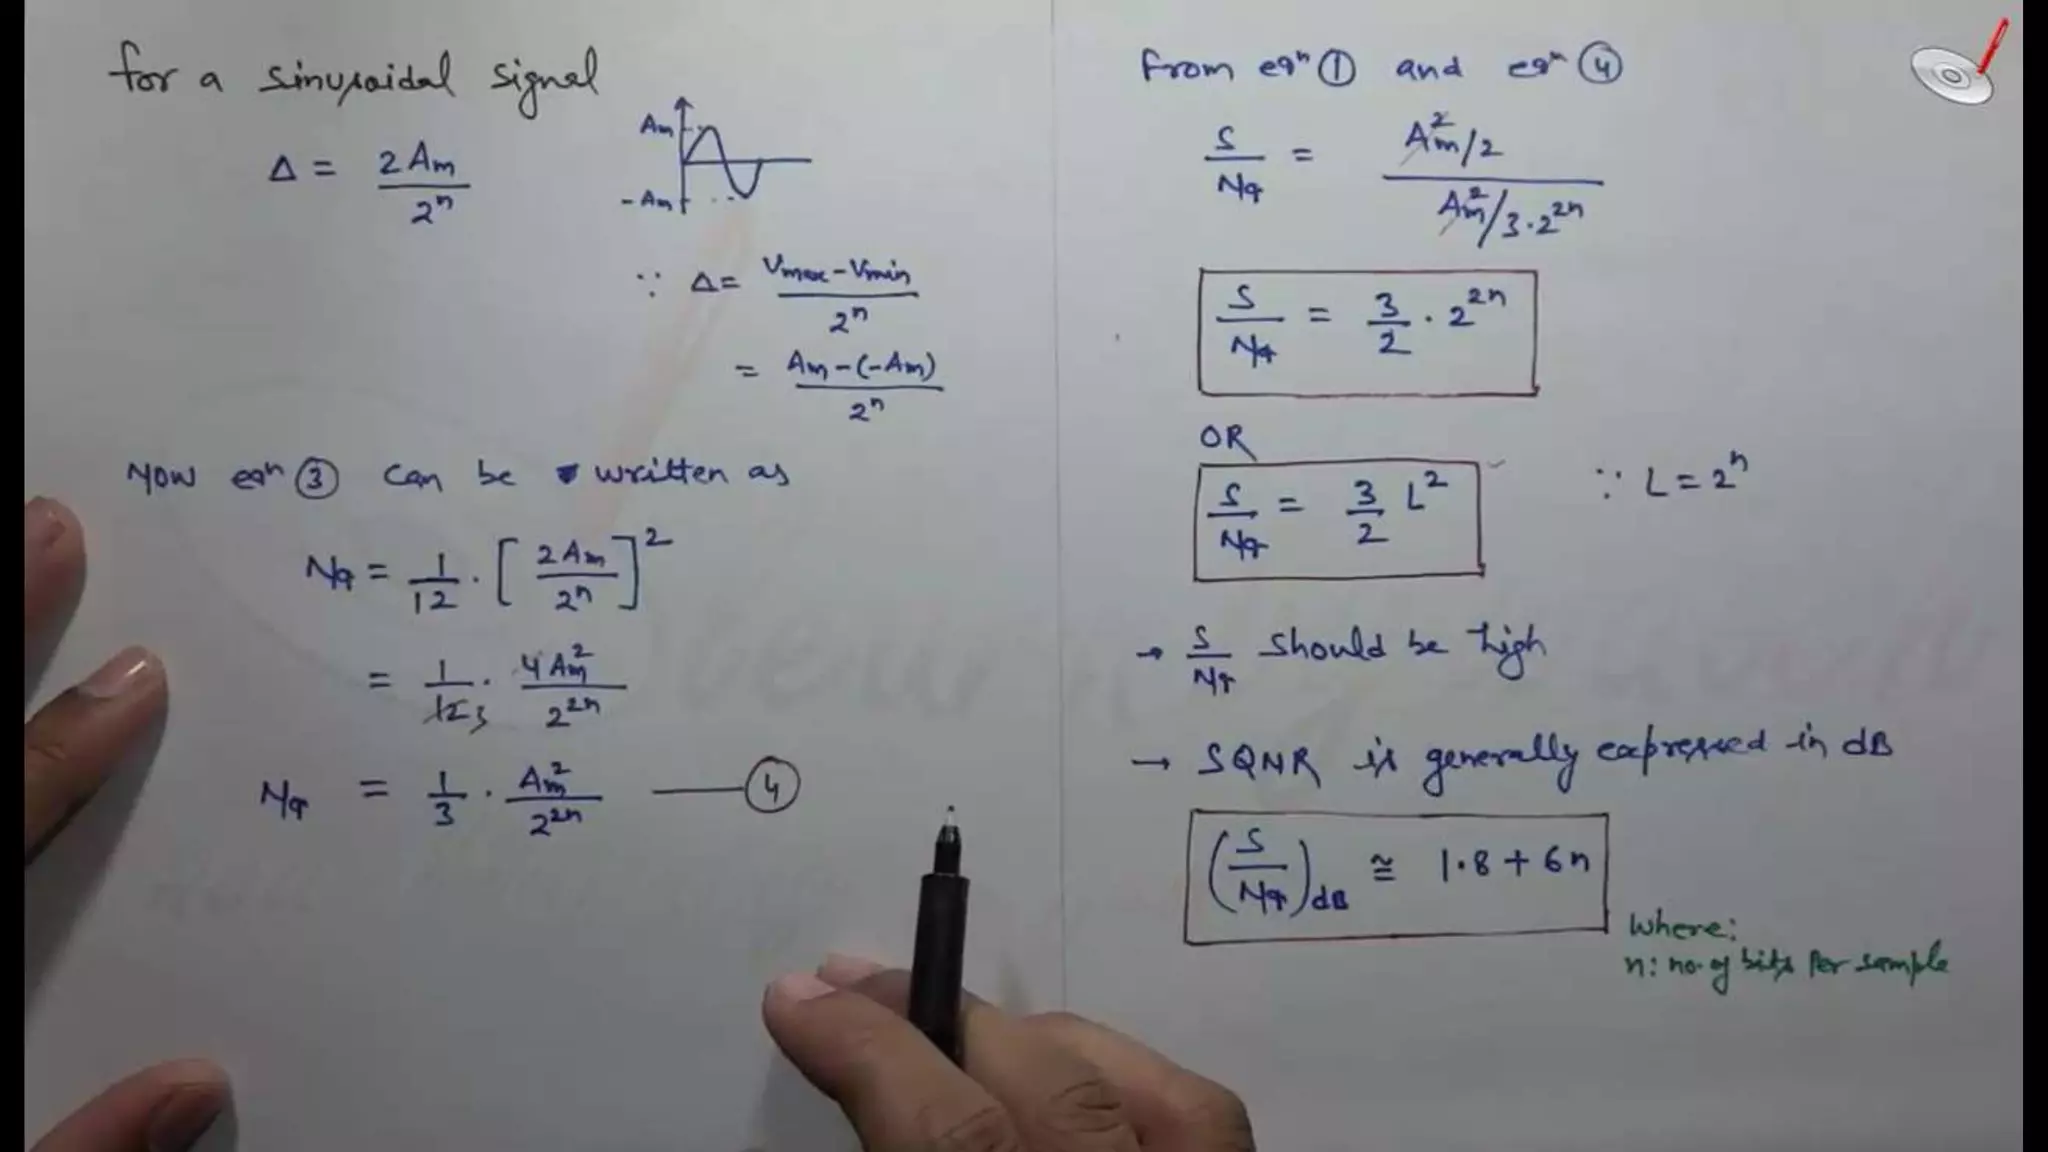 for a sinusoidal signal
Δ = 2Am / 2^n
Am
-Am
∵ Δ = Vmax - Vmin / 2^n
= Am - (-Am) / 2^n
Now eqn ③ can be written as
Nq = 1/12 · [2Am / 2^n]^2
= 1/12 3 · 4Am^2 / 2^2n
Nq = 1/3 · Am^2 / 2^2n —— ④
From eqn ① and eqn ④
S/Nq = Am^2/2 / Am^2/3·2^2n
S/Nq = 3/2 · 2^2n
OR
S/Nq = 3/2 L^2 ∵ L = 2^n
→ S/Nq should be high
→ SQNR is generally expressed in dB
(S/Nq)dB ≅ 1.8 + 6n
Where:
n: no. of bits per sample